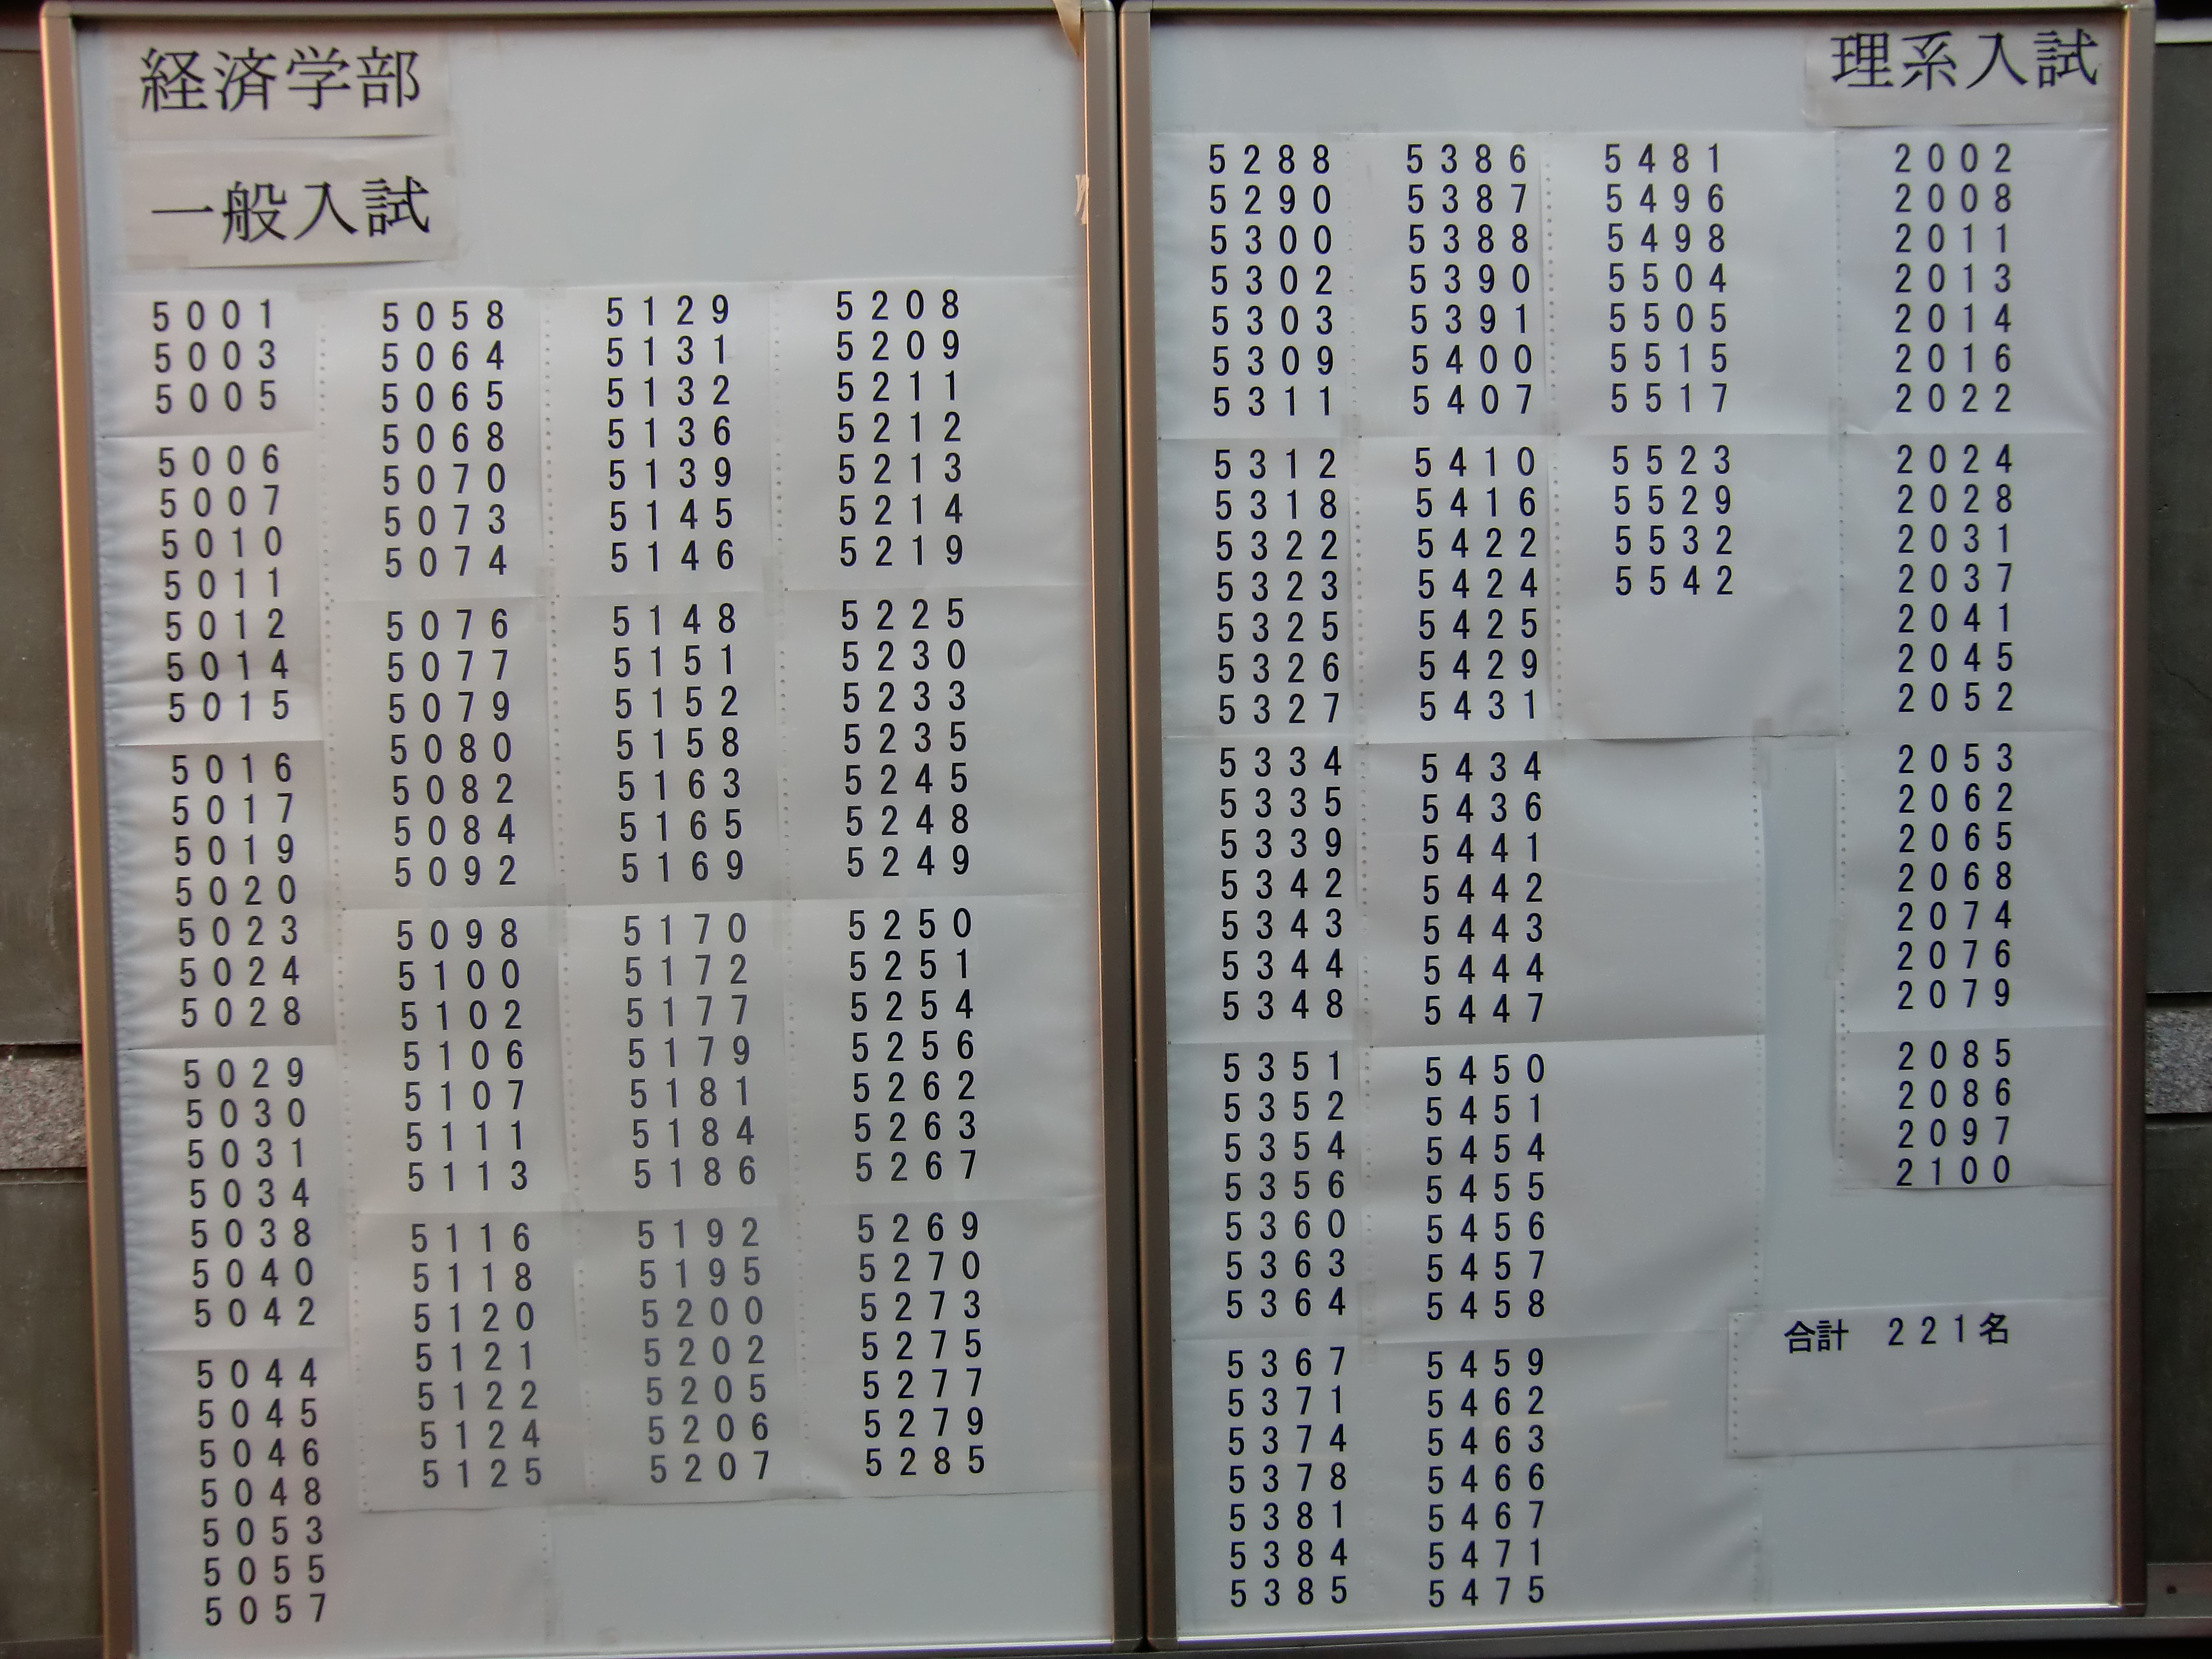 経済学部
一般入試
5001
5003
5005
5006
5007
5010
5011
5012
5014
5015
5016
5017
5019
5020
5023
5024
5028
5029
5030
5031
5034
5038
5040
5042
5044
5045
5046
5048
5053
5055
5057
5058
5064
5065
5068
5070
5073
5074
5076
5077
5079
5080
5082
5084
5092
5098
5100
5102
5106
5107
5111
5113
5116
5118
5120
5121
5122
5124
5125
5129
5131
5132
5136
5139
5145
5146
5148
5151
5152
5158
5163
5165
5169
5170
5172
5177
5179
5181
5184
5186
5192
5195
5200
5202
5205
5206
5207
5208
5209
5211
5212
5213
5214
5219
5225
5230
5233
5235
5245
5248
5249
5250
5251
5254
5256
5262
5263
5267
5269
5270
5273
5275
5277
5279
5285
5288
5290
5300
5302
5303
5309
5311
5312
5318
5322
5323
5325
5326
5327
5334
5335
5339
5342
5343
5344
5348
5351
5352
5354
5356
5360
5363
5364
5367
5371
5374
5378
5381
5384
5385
5386
5387
5388
5390
5391
5400
5407
5410
5416
5422
5424
5425
5429
5431
5434
5436
5441
5442
5443
5444
5447
5450
5451
5454
5455
5456
5457
5458
5459
5462
5463
5466
5467
5471
5475
5481
5496
5498
5504
5505
5515
5517
5523
5529
5532
5542
理系入試
2002
2008
2011
2013
2014
2016
2022
2024
2028
2031
2037
2041
2045
2052
2053
2062
2065
2068
2074
2076
2079
2085
2086
2097
2100
合計 221名